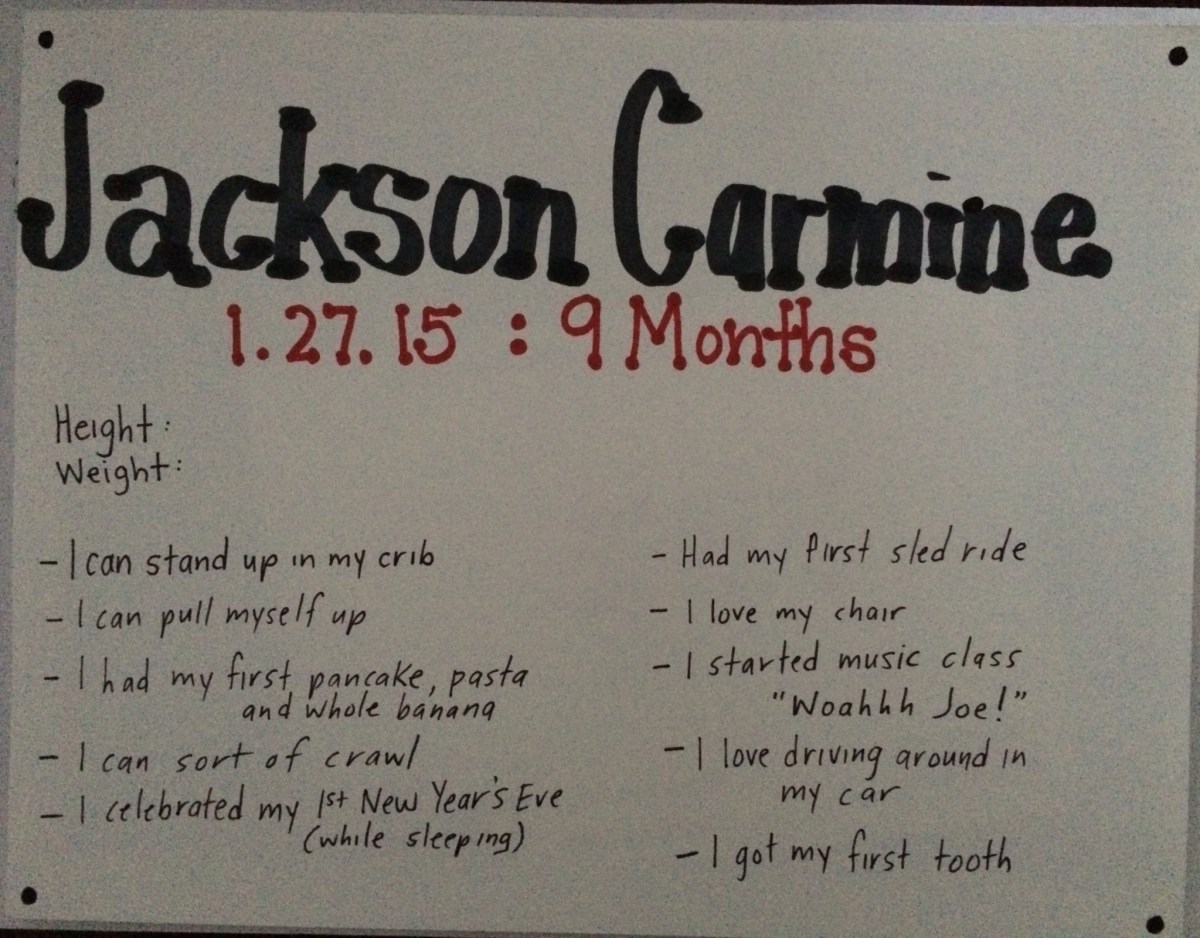 Jackson Carmine
1.27.15 : 9 Months
Height:
Weight:
- I can stand up in my crib
- I can pull myself up
- I had my first pancake, pasta
and whole banana
- I can sort of crawl
- I celebrated my 1st New Year's Eve
(while sleeping)
- Had my first sled ride
- I love my chair
- I started music class
"Woahhh Joe!"
- I love driving around in
my car
- I got my first tooth